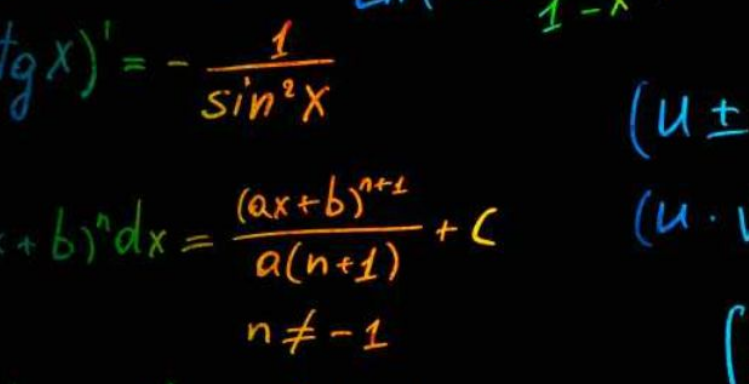 tgx)' = - 1/sin²x
(u ±
+ b)ⁿdx = (ax+b)ⁿ⁺¹/a(n+1) + C
(u ·
n ≠ -1
1-x
∫